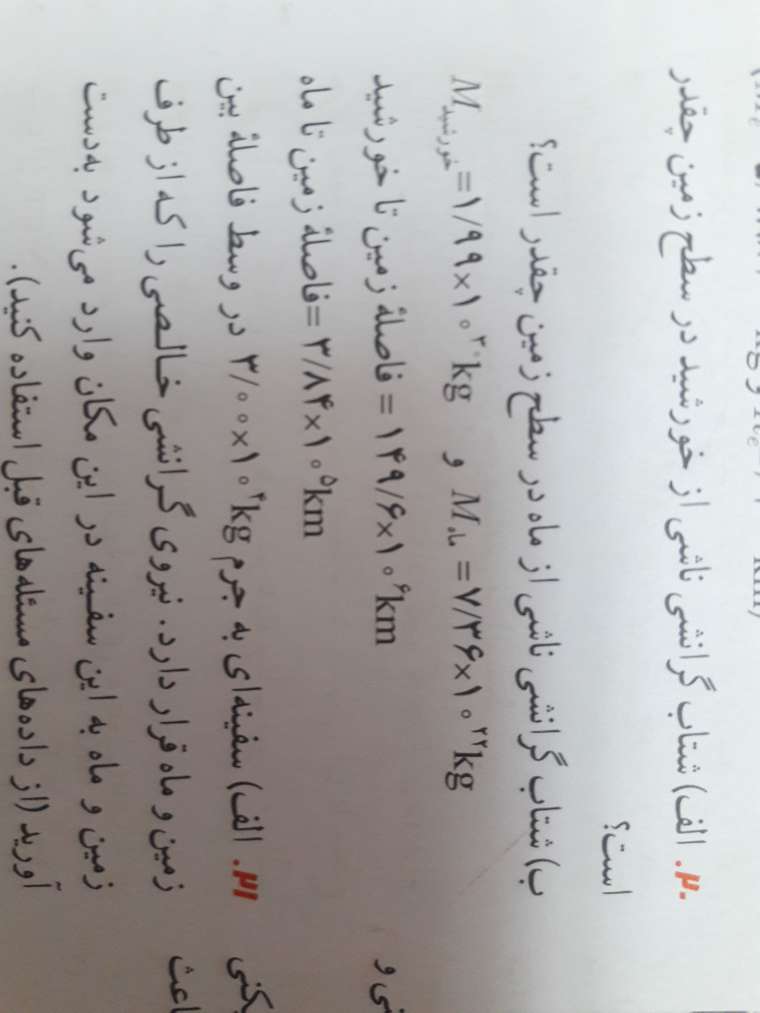 ۲۰. الف) شتاب گرانشی ناشی از خورشید در سطح زمین چقدر
است؟
ب) شتاب گرانشی ناشی از ماه در سطح زمین چقدر است؟
M خورشید = ۱/۹۹×۱۰^۳۰ kg و M ماه = ۷/۳۶×۱۰^۲۲ kg
فاصلهٔ زمین تا خورشید = ۱۴۹/۶×۱۰^۶ km
فاصلهٔ زمین تا ماه = ۳/۸۴×۱۰^۵ km
۲۱. الف) سفینه‌ای به جرم ۳/۰۰×۱۰^۴ kg در وسط فاصلهٔ بین
زمین و ماه قرار دارد. نیروی گرانشی خالصی را که از طرف
زمین و ماه به این سفینه در این مکان وارد می‌شود به‌دست
آورید (از داده‌های مسئله‌های قبل استفاده کنید).